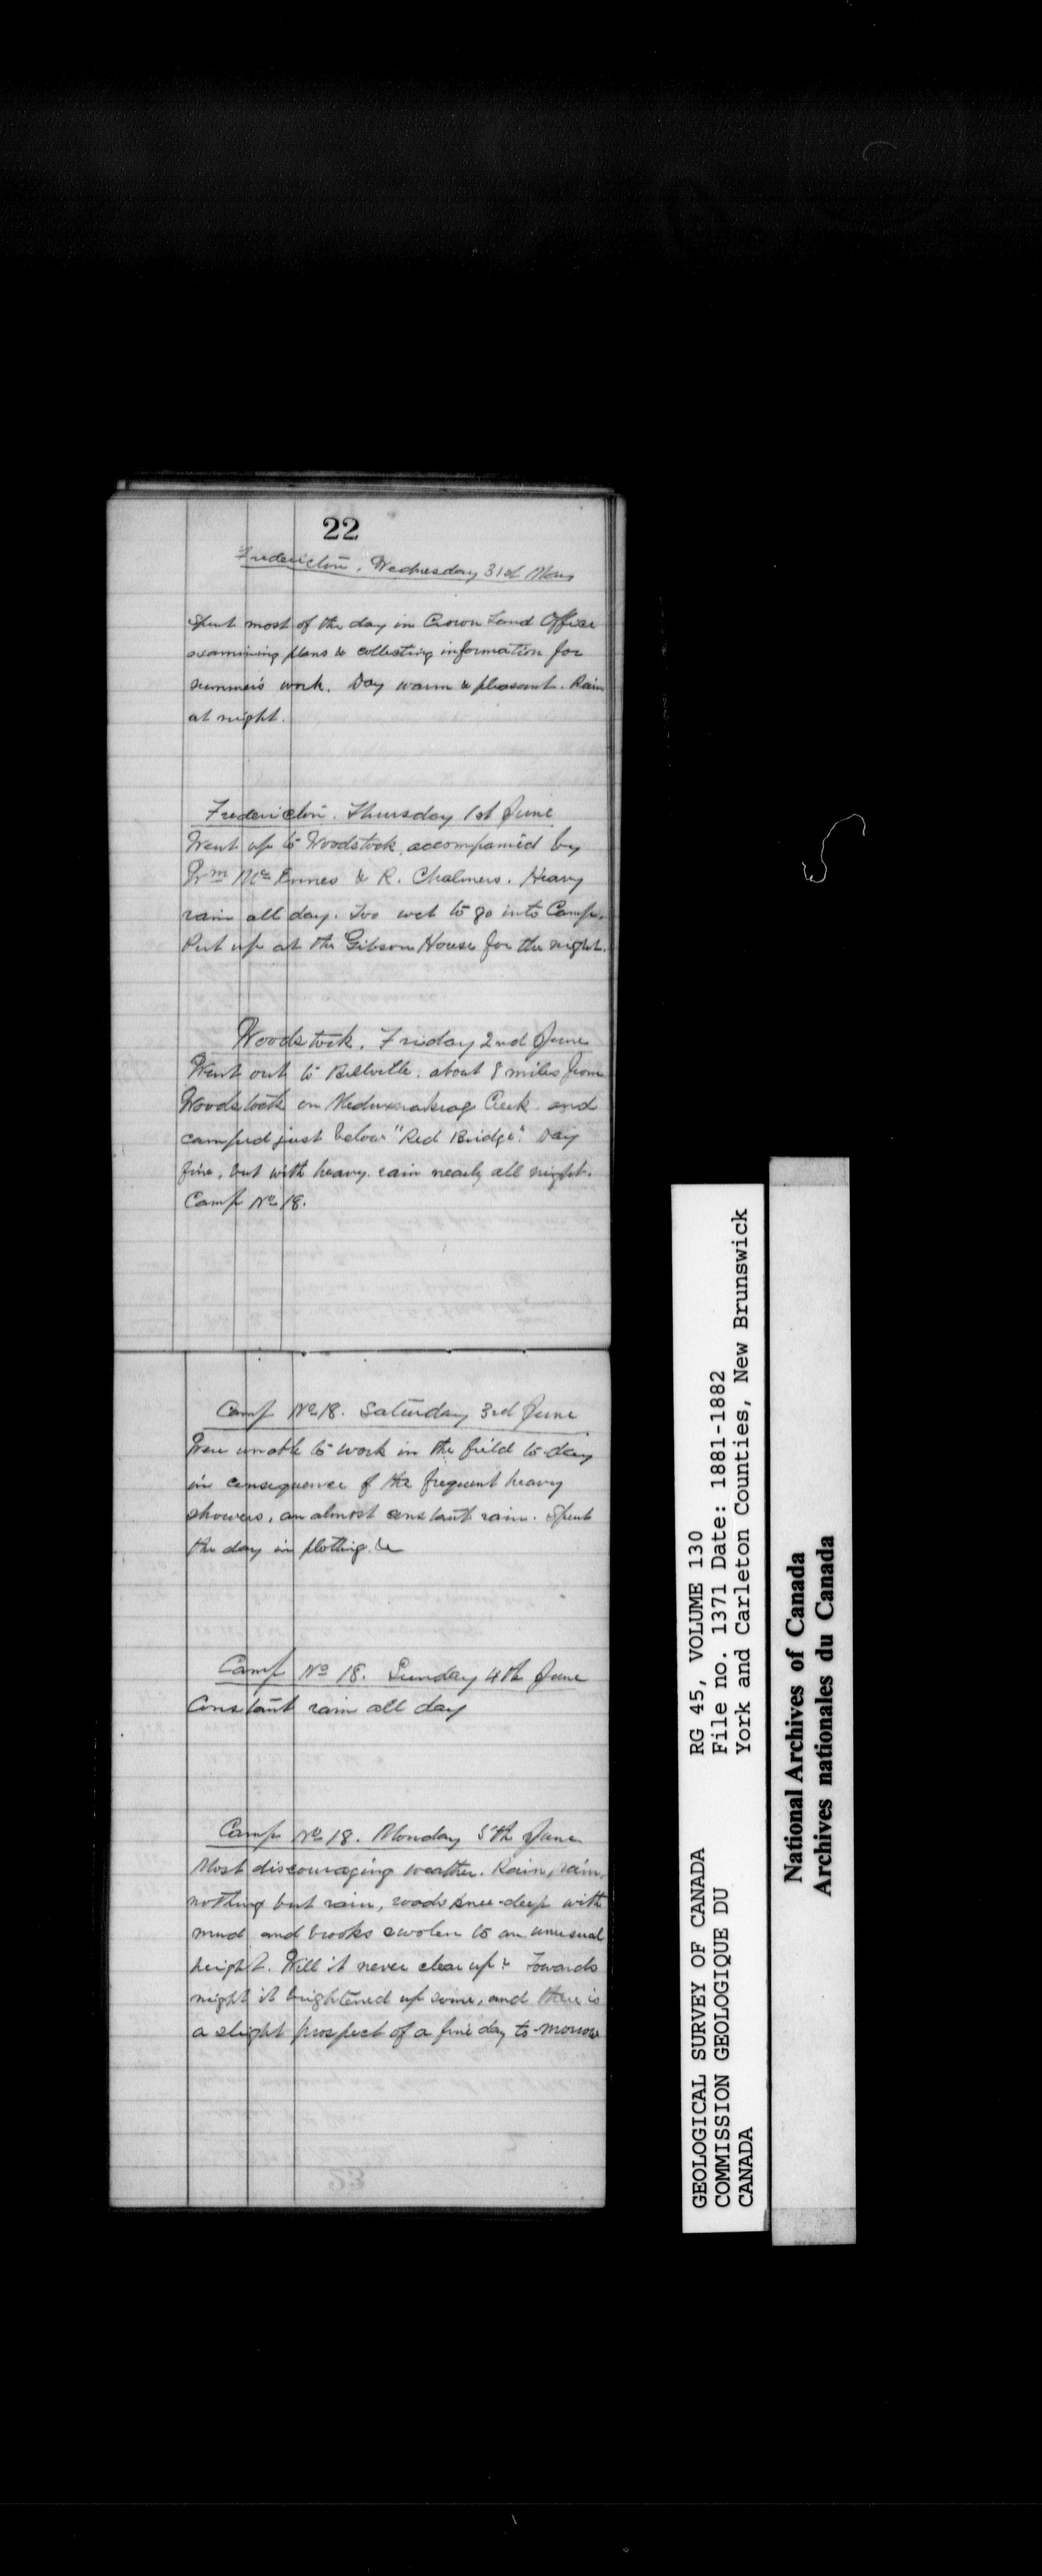 22
Fredericton, Wednesday 31st May
Spent most of the day in Crown Land Office
examining plans & collecting information for
summer's work. Day warm & pleasant. Rain
at night.
Fredericton. Thursday 1st June
Went up to Woodstock accompanied by
Wm McInnes & R. Chalmers. Heavy
rain all day. Too wet to go into Camp.
Put up at the Gibson House for the night.
Woodstock. Friday 2nd June
Went out to Bellville. about 8 miles from
Woodstock on Meduxnakeag Creek and
camped just below "Red Bridge". Day
fine, but with heavy rain nearly all night.
Camp No 18.
Camp No 18. Saturday 3rd June
Were unable to work in the field to-day
in consequence of the frequent heavy
showers, an almost constant rain. Spent
the day in plotting &c
Camp No 18. Sunday 4th June
Constant rain all day
Camp No 18. Monday 5th June
Most discouraging weather. Rain, rain,
nothing but rain, roads knee-deep with
mud and brooks swolen to an unusual
height. Will it never clear up? Towards
night it brightened up some, and there is
a slight prospect of a fine day to-morrow
GEOLOGICAL SURVEY OF CANADA
COMMISSION GEOLOGIQUE DU
CANADA
RG 45, VOLUME 130
File no. 1371 Date: 1881-1882
York and Carleton Counties, New Brunswick
National Archives of Canada
Archives nationales du Canada